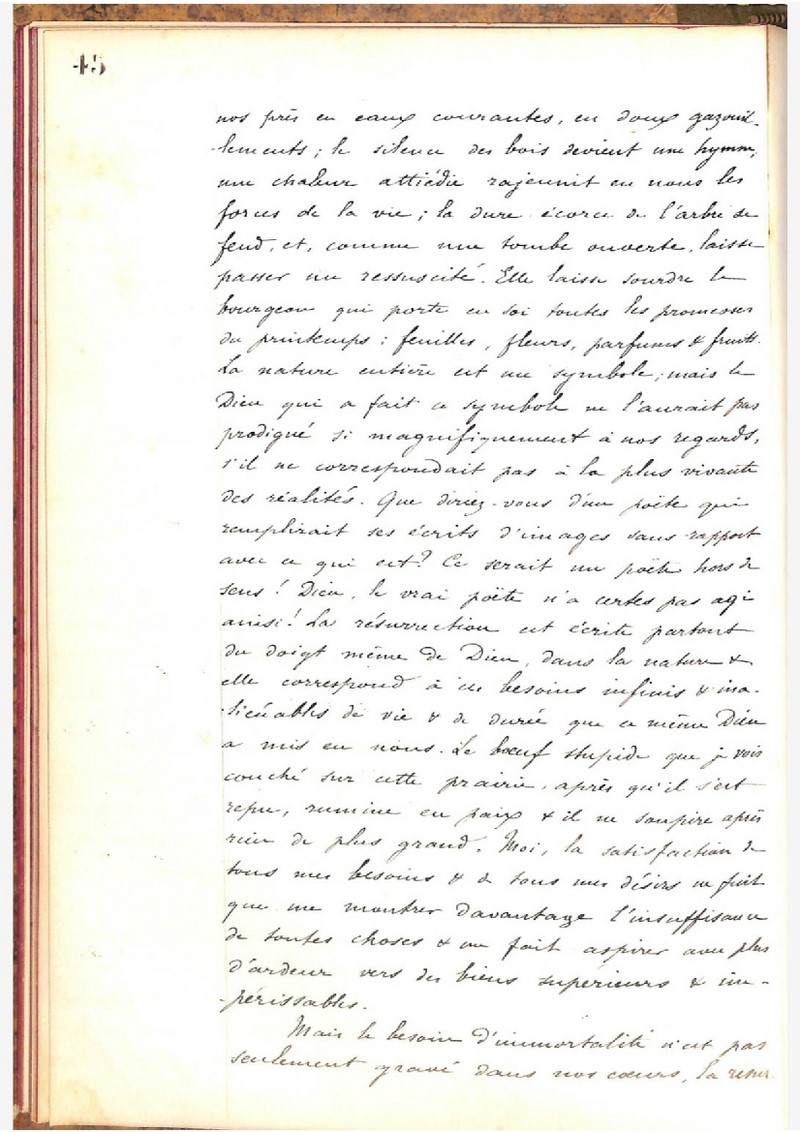 45
nos prés en eaux courantes, en doux gazouil-
-lements ; le silence des bois devient une hymne,
une chaleur attiédie rajeunit en nous les
forces de la vie ; la dure écorce de l'arbre se
fend, et, comme une tombe ouverte, laisse
passer un ressuscité. Elle laisse sourdre le
bourgeon qui porte en soi toutes les promesses
du printemps : feuilles, fleurs, parfums & fruits.
La nature entière est un symbole ; mais le
Dieu qui a fait ce symbole ne l'aurait pas
prodigué si magnifiquement à nos regards,
s'il ne correspondait pas à la plus vivante
des réalités. Que diriez-vous d'un poëte qui
remplirait ses écrits d'images sans rapport
avec ce qui est? Ce serait un poëte hors de
sens ! Dieu, le vrai poëte n'a certes pas agi
ainsi ! La résurrection est écrite partout
du doigt même de Dieu, dans la nature &
elle correspond à ces besoins infinis & ina-
-liénables de vie & de durée que ce même Dieu
a mis en nous. Le bœuf stupide que je vois
couché sur cette prairie, après qu'il s'est
repu, rumine en paix & il ne soupire après
rien de plus grand. Moi, la satisfaction de
tous mes besoins & de tous mes désirs ne fait
que me montrer davantage l'insuffisance
de toutes choses & me fait aspirer avec plus
d'ardeur vers des biens supérieurs & im-
-périssables.
Mais le besoin d'immortalité n'est pas
seulement gravé dans nos cœurs, la résur-